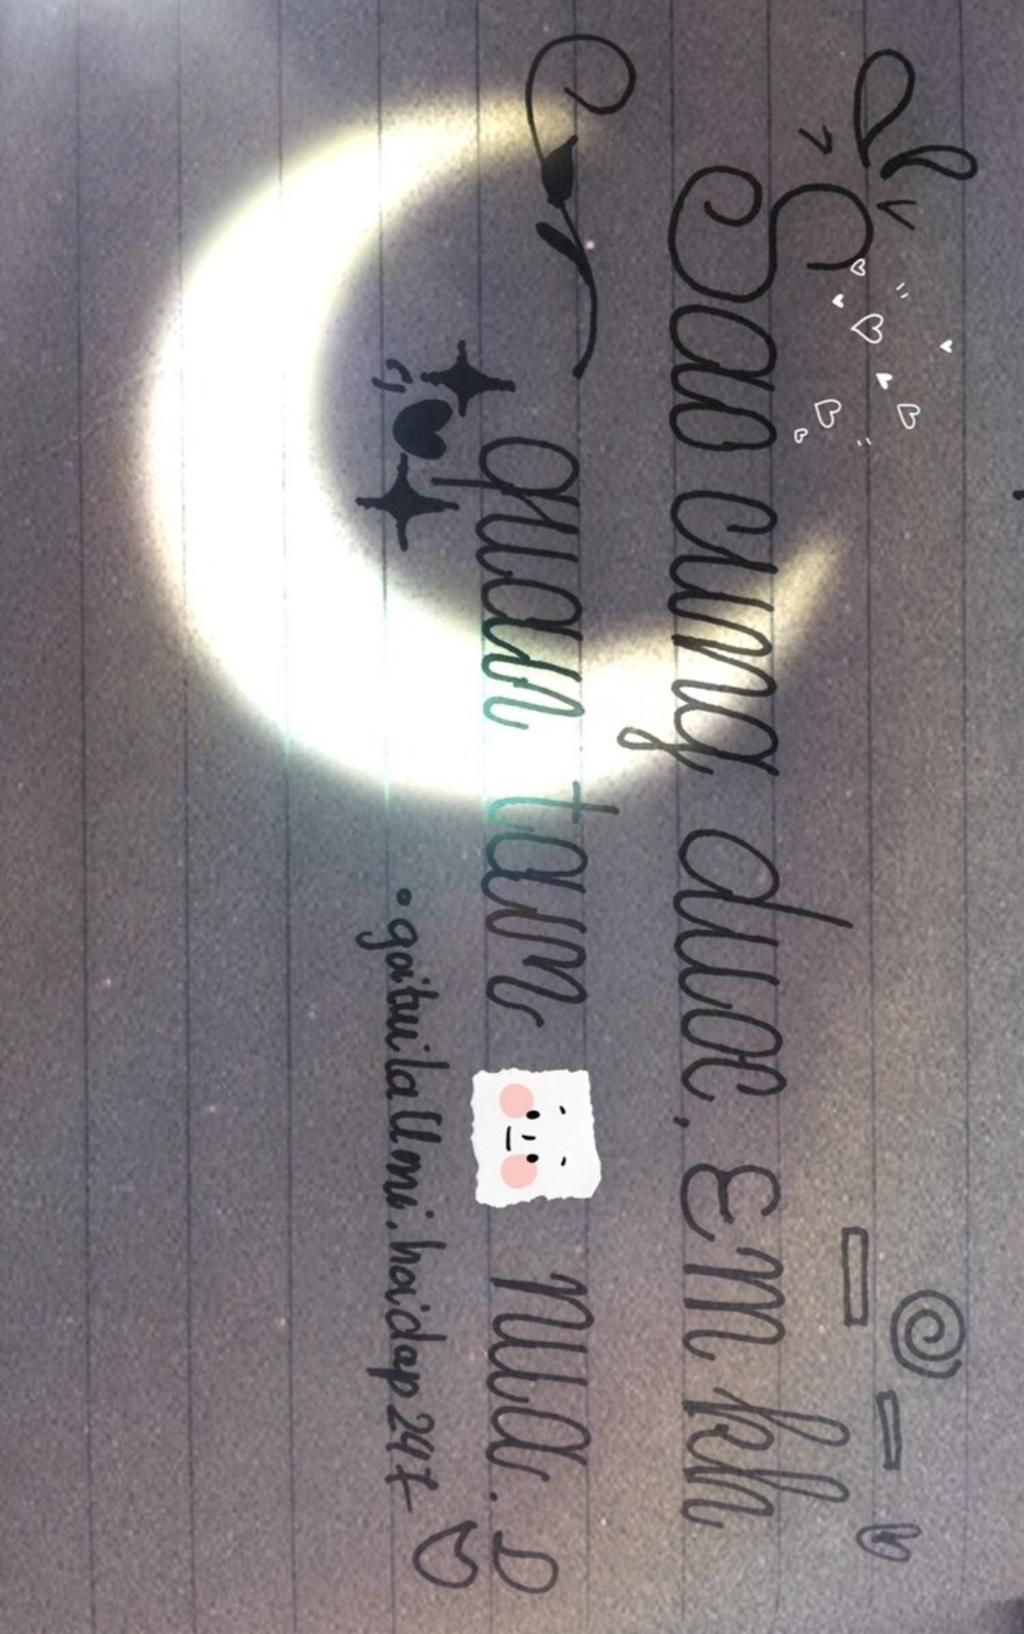 Sao cung duoc, Em kh
quan tam nua.
.gaituilallmi.hoidap247